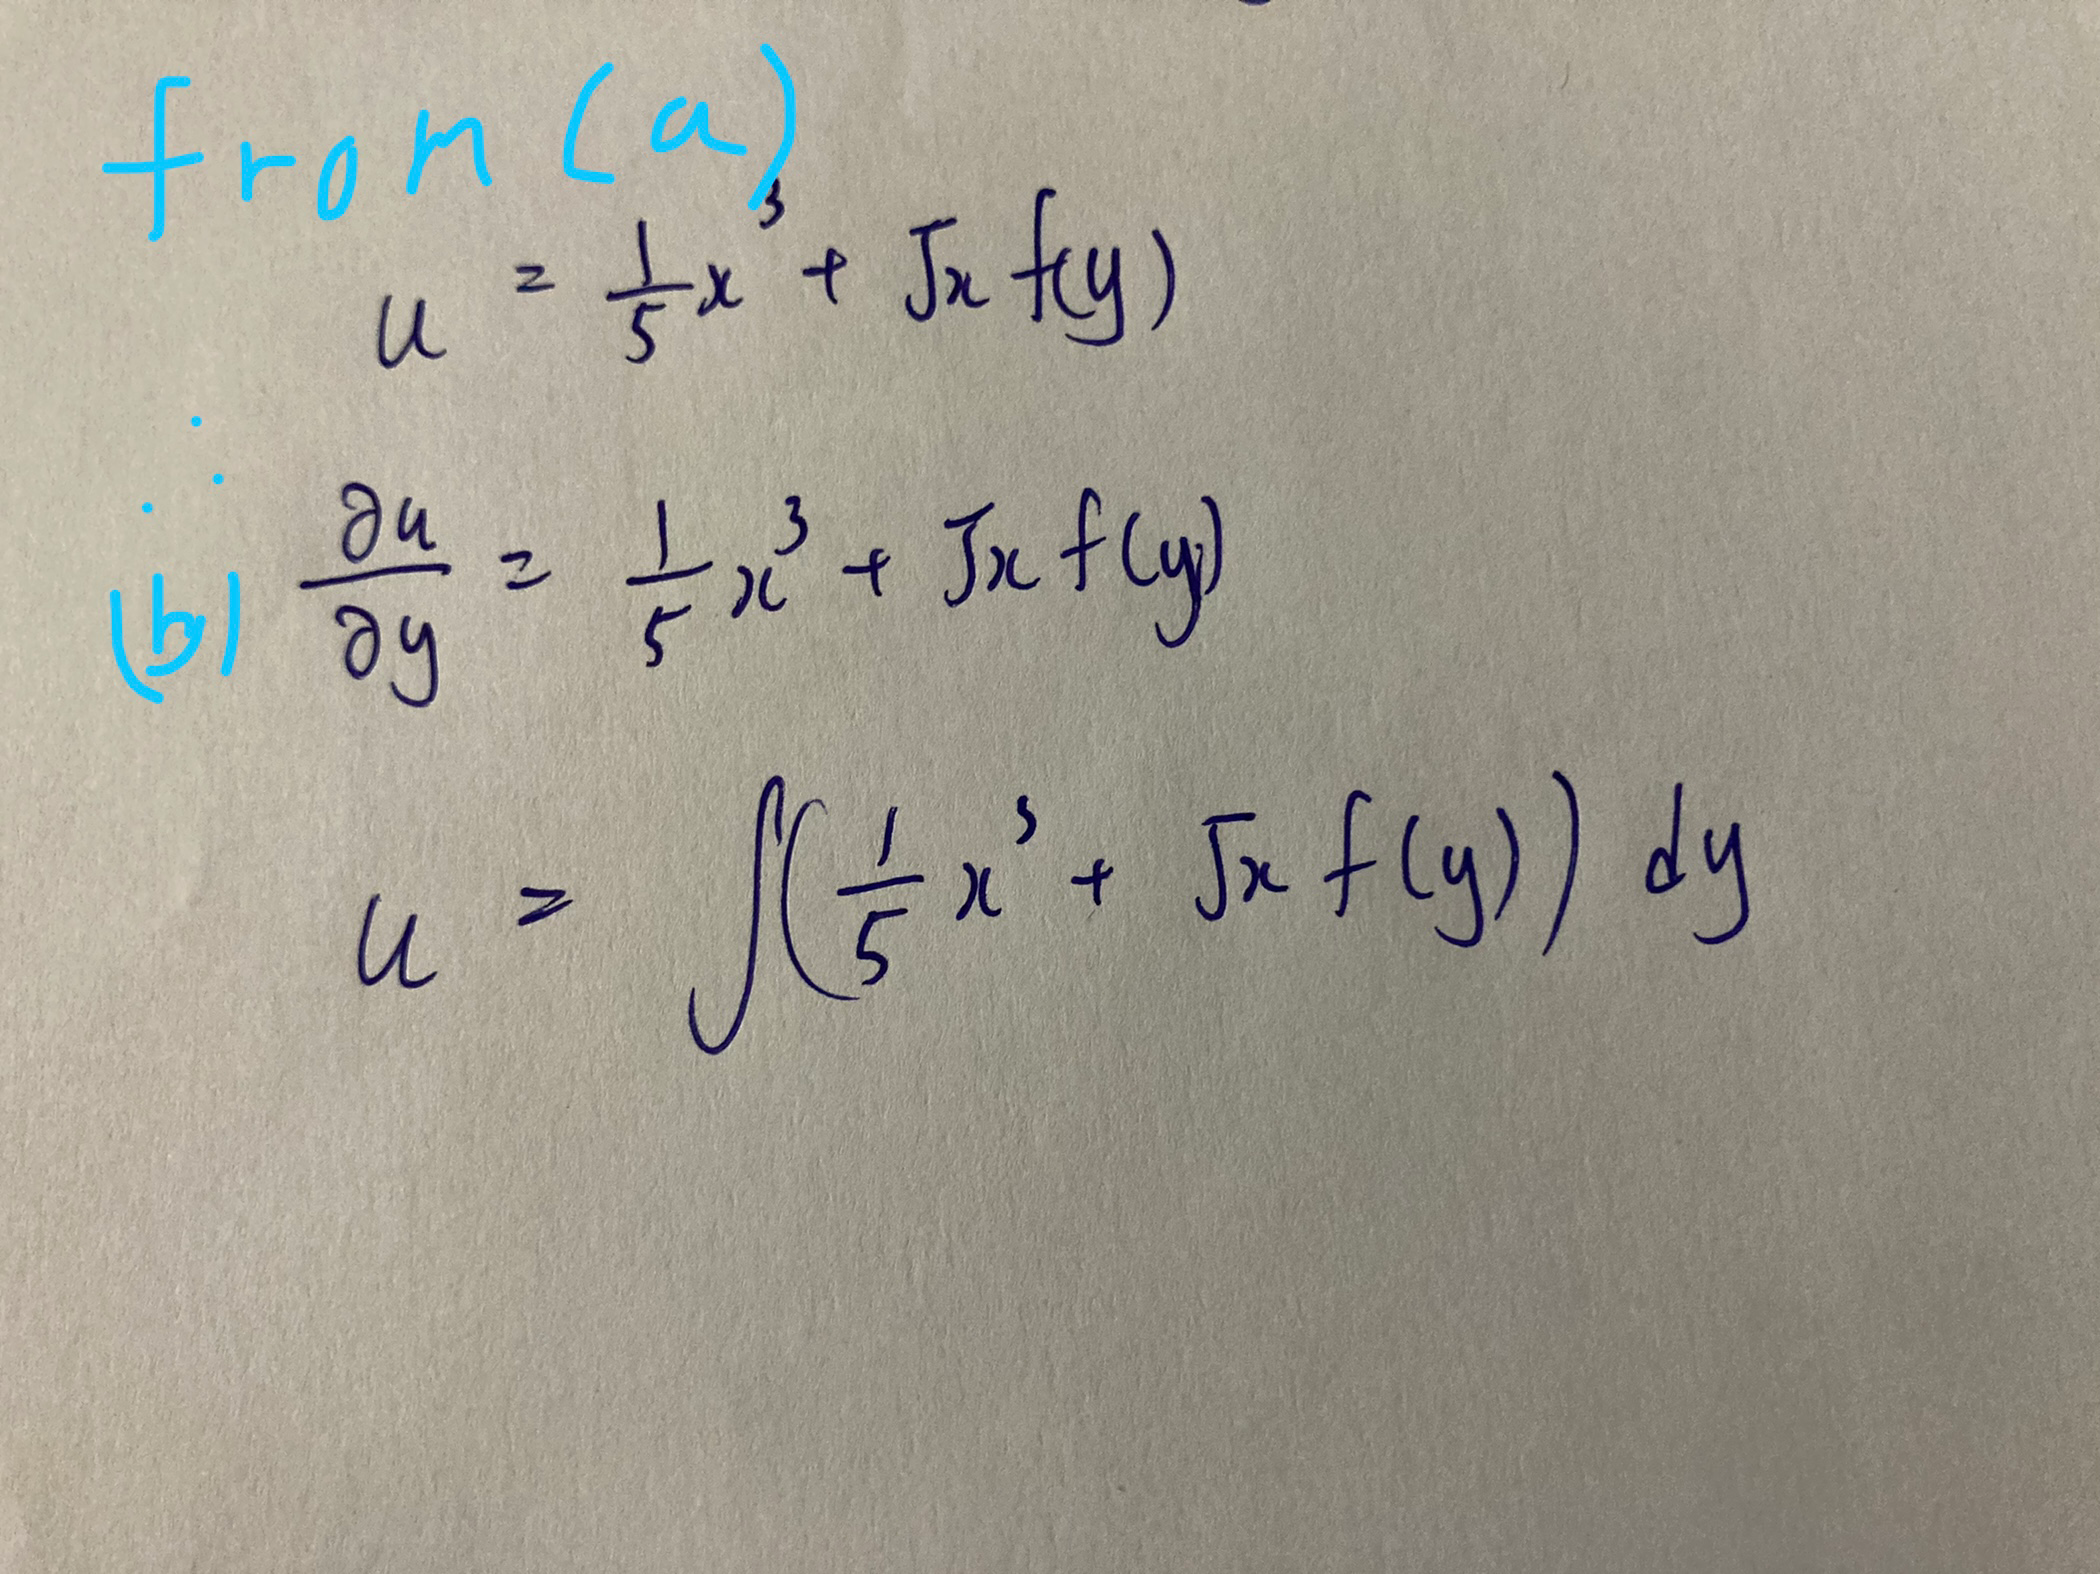 from (a)
u = 1/5 x³ + √x f(y)
∴
(b) ∂u/∂y = 1/5 x³ + √x f(y)
u = ∫(1/5 x³ + √x f(y)) dy